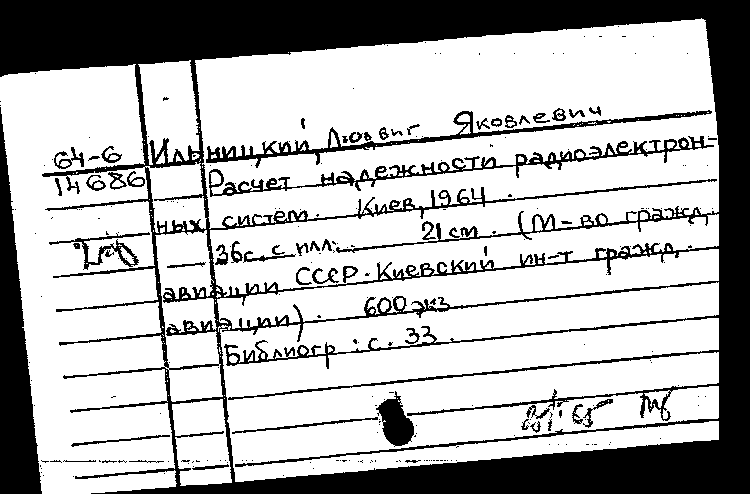 64-6 Ильницкий, Людвиг Яковлевич
14686 Расчет надежности радиоэлектрон-
ных систем. Киев, 1964.
36с. с илл. 21см. (М-во гражд.
авиации СССР. Киевский ин-т гражд.
авиации). 600 экз
Библиогр : с. 33.